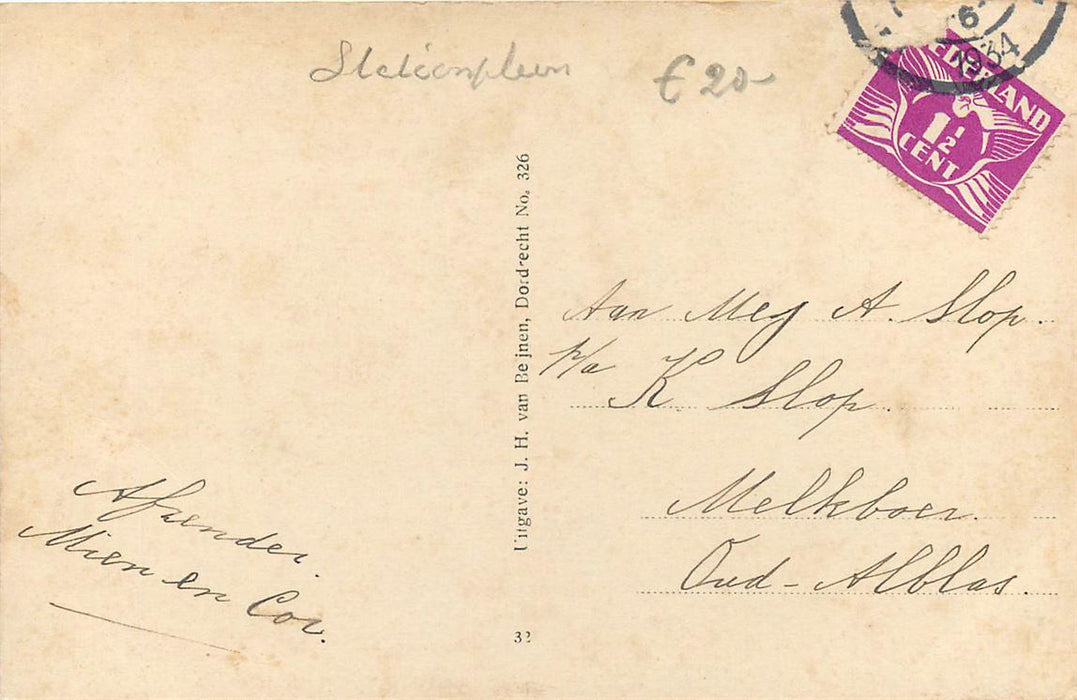 Stationplein
€ 20-
6
1934
NEDERLAND
1½
CENT
Uitgave: J. H. van Beijnen, Dordrecht No. 326
Aan Mej A. Slop.
p/a K. Slop.
Melkboer.
Oud-Alblas.
Afzender.
Mien en Cor.
32